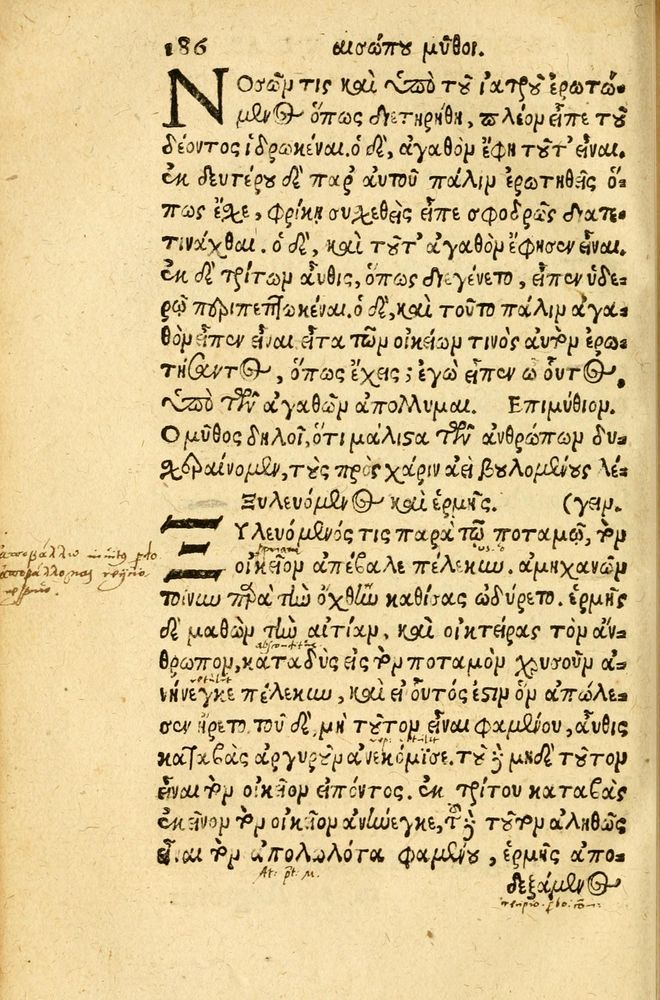 186 αισώπου μῦθοι.
Νοσῶν τις καὶ ὑπὸ τοῦ ἰατροῦ ἐρωτώ-
μενος ὅπως διετηρήθη, πλέον εἶπε τοῦ
δέοντος ἱδρωκέναι. ὁ δὲ, ἀγαθὸν ἔφη τοῦτ' εἶναι.
ἐκ δευτέρου δὲ παρ' αυτοῦ πάλιν ἐρωτηθεὶς ὅ-
πως ἔχει, φρίκῃ συχεθεὶς εἶπε σφοδρῶς διατε-
τινάχθαι. ὁ δὲ, καὶ τοῦτ' ἀγαθὸν ἔφησεν εἶναι.
ἐκ δὲ τρίτων αὖθις, ὅπως διεγένετο, εἶπεν ὑδέ-
ρῳ περιπεπτωκέναι. ὁ δὲ, καὶ τοῦτο πάλιν ἀγα-
θὸν εἶπεν εἶναι εἶτα τῶν οἰκείων τινὸς αυτὸν ἐρω-
τήσαντος, ὅπως ἔχεις; ἐγὼ εἶπεν ὦ οὗτος,
ὑπὸ τῶν ἀγαθῶν ἀπόλλυμαι. Επιμύθιον.
Ο μῦθος δηλοῖ, ὅτι μάλιστα τῶν ἀνθρώπων δυ-
χεραίνομεν, τοὺς πρὸς χάριν ἀεὶ βουλομένους λέ-
Ξυλευόμενος καὶ ἑρμῆς. (γειν.
Ξυλευόμενός τις παρὰ τῷ ποταμῷ, τὸν
οἰκεῖον ἀπέβαλε πέλεκυν. ἀμηχανῶν
τοίνυν παρὰ τὴν ὄχθην καθίσας ὠδύρετο. ἑρμῆς
δὲ μαθὼν τὴν αἰτίαν, καὶ οἰκτείρας τὸν ἄν-
θρωπον, καταδὺς εἰς τὸν ποταμὸν χρυσοῦν ἀ-
νήνεγκε πέλεκυν, καὶ εἰ οὗτός ἐστιν ὃν ἀπώλε-
σεν ἤρετο. τοῦ δὲ, μὴ τοῦτον εἶναι φαμένου, αὖθις
καταβὰς ἀργυροῦν ἀνεκόμισε. τοῦ δὲ μηδὲ τοῦτον
εἶναι τὸν οἰκεῖον εἰπόντος. ἐκ τρίτου καταβὰς
ἐκεῖνον τὸν οἰκεῖον ἀνήνεγκε, τοῦ δὲ τοῦτον ἀληθῶς
εἶναι τὸν ἀπολωλότα φαμένου, ἑρμῆς ἀπο-
δεξάμενος